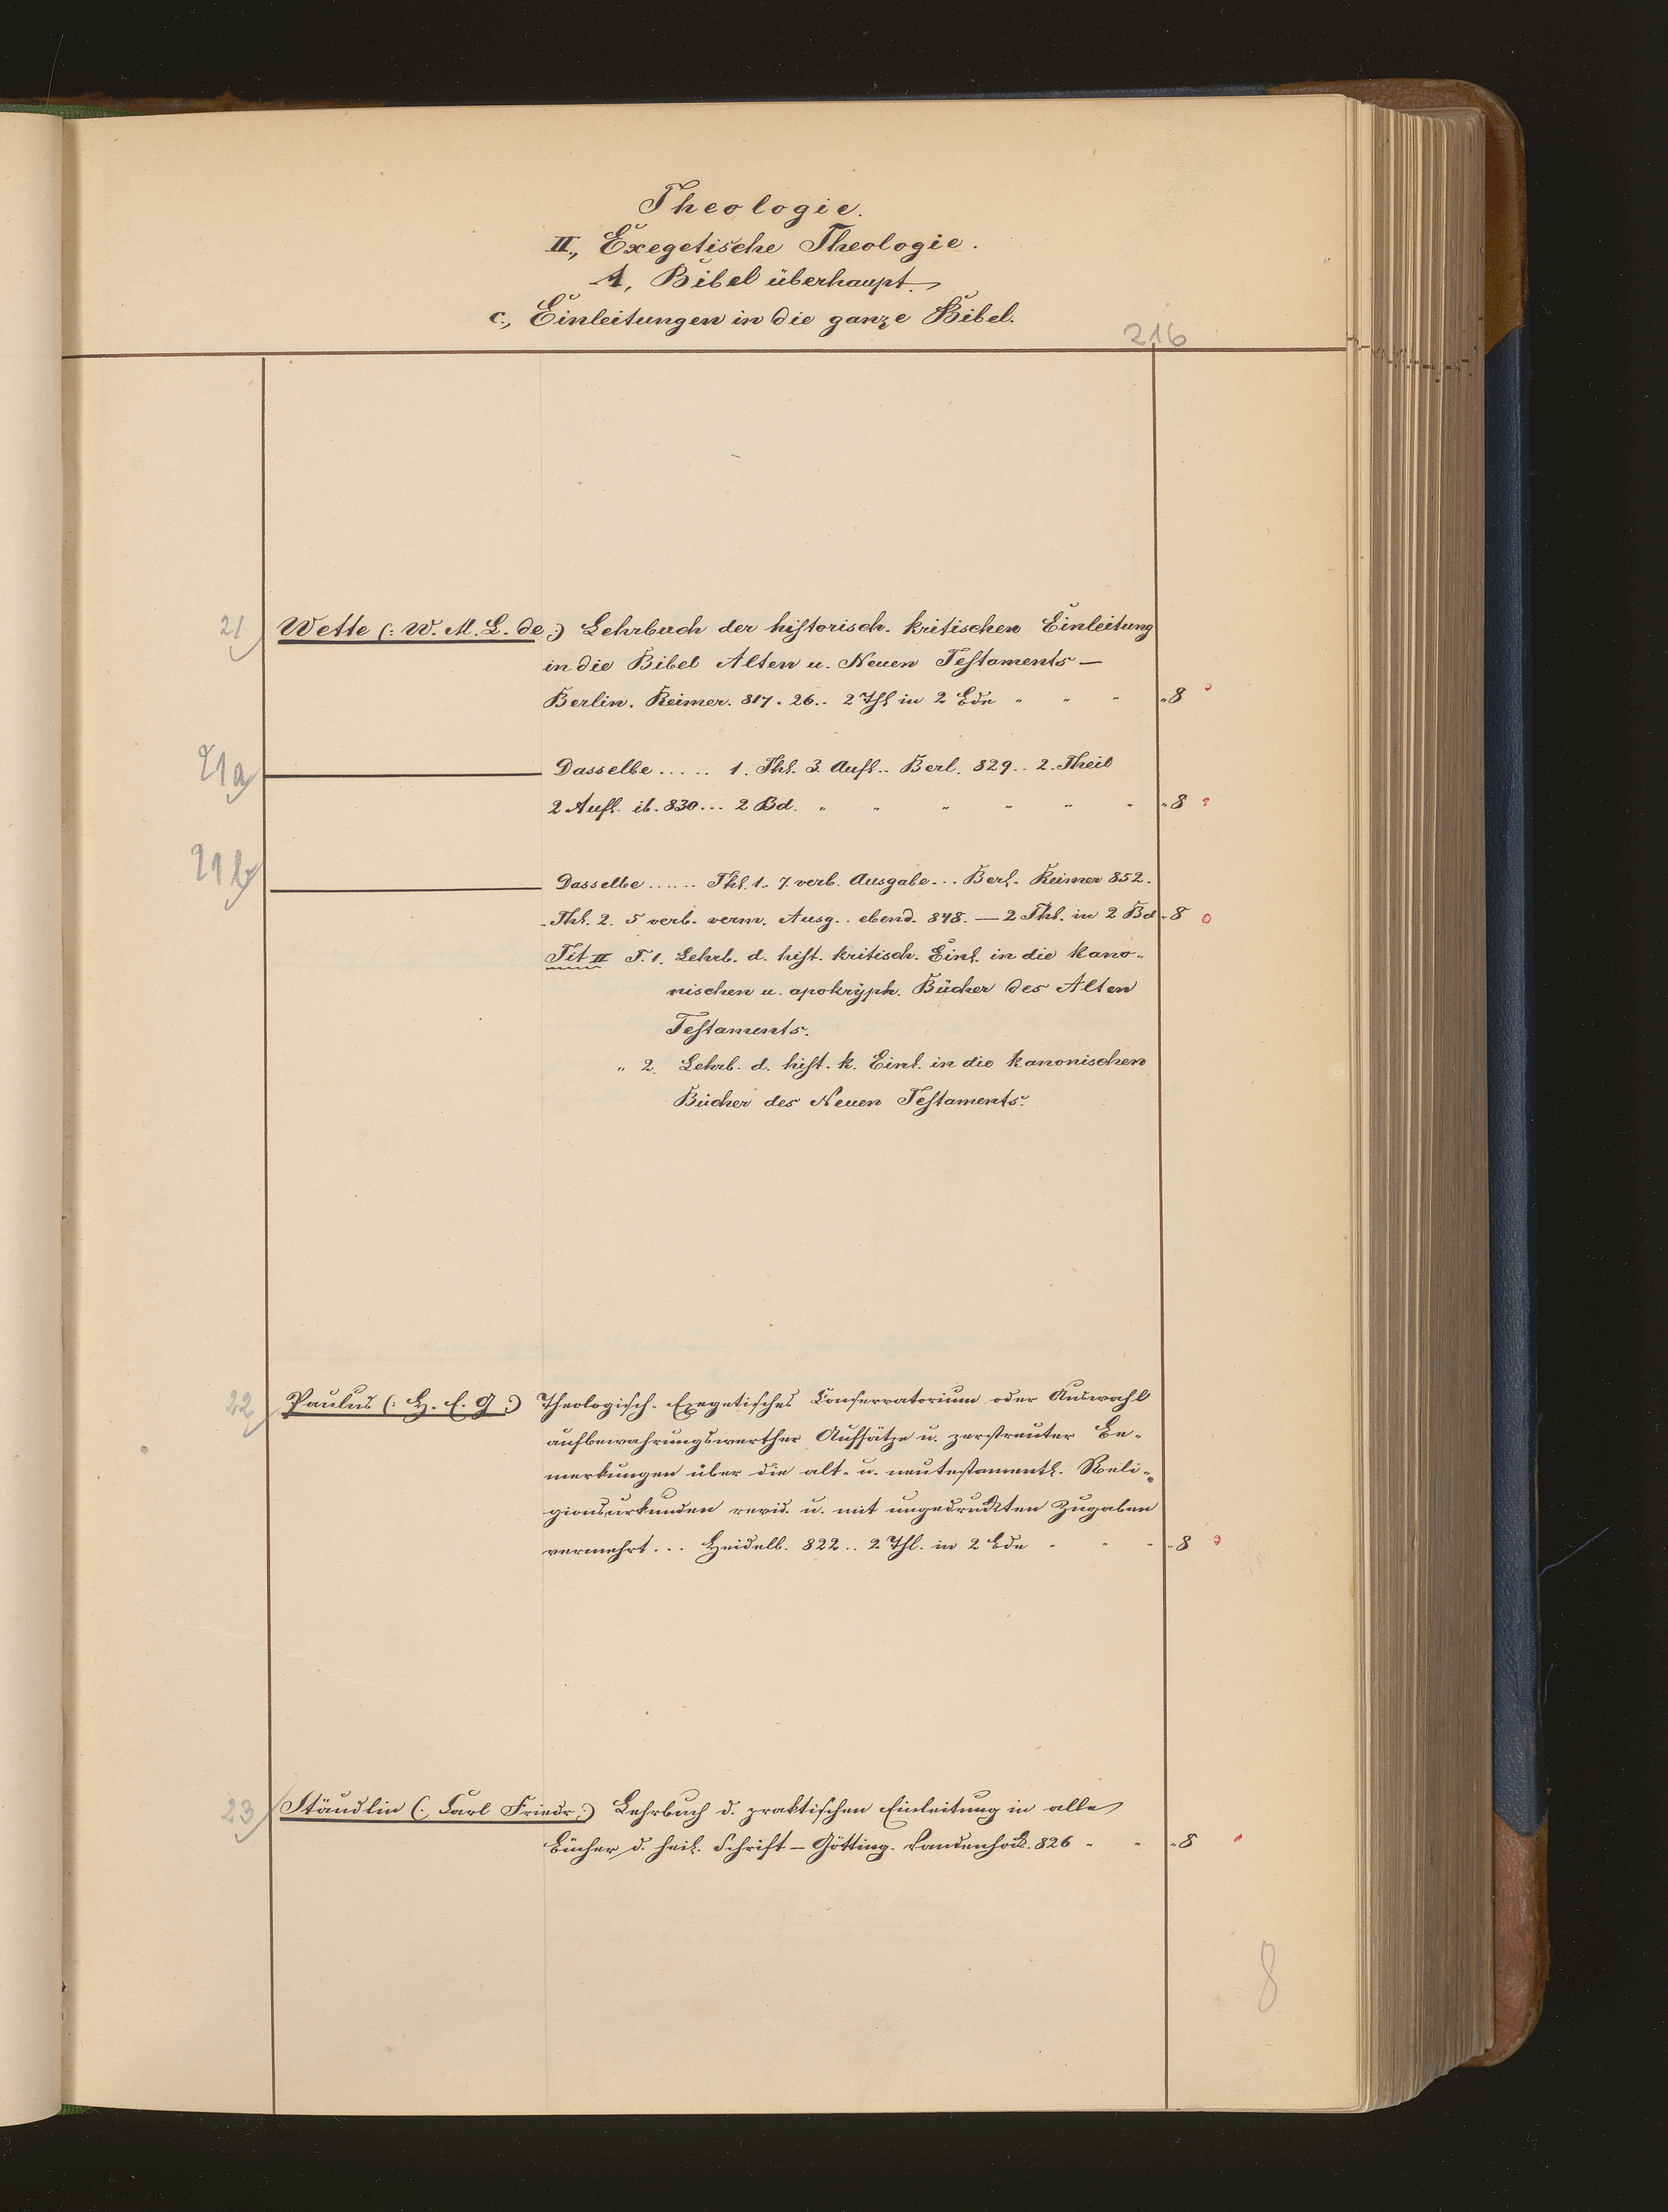 Theologie.
II., Exegetische Theologie.
A, Bibel überhaupt.
c., Einleitungen in die ganze Bibel.
216
21 Wette (: W. M. L. de :) Lehrbuch der historisch-kritischen Einleitung
in die Bibel Alten u. Neuen Testaments —
Berlin. Reimer. 817. 26.. 2 Thl in 2 Bdn " " " "8
21a Dasselbe ..... 1. Thl. 3. Aufl.. Berl. 829.. 2. Theil
2 Aufl. ib. 830... 2 Bd. " " " " " " "8
21b Dasselbe ...... Thl. 1.. 7. verb. Ausgabe... Berl. Reimer 852.
Thl. 2. 5 verb. verm. Ausg.. ebend. 848. — 2 Thl. in 2 Bd "8
Tit II T. 1. Lehrb. d. hist. kritisch. Einl. in die kano-
nischen u. apokryph. Bücher des Alten
Testaments.
" 2. Lehrb. d. hist. k. Einl. in die kanonischen
Bücher des Neuen Testaments.
22 Paulus (: H. E. G :) Theologisch-Exegetisches Conservatorium oder Auswahl
aufbewahrungswerther Aufsätze u. zerstreuter Be-
merkungen über die alt- u. neutestamentl. Reli-
gionsurkunden revid. u. mit ungedruckten Zugaben
vermehrt... Heidelb. 822.. 2 Thl. in 2 Bde " " " "8
23 Stäudlin (: Carl Friedr :) Lehrbuch d. praktischen Einleitung in alle
Bücher d. heil. Schrift — Götting. Vandenhöck. 826 " " "8
8